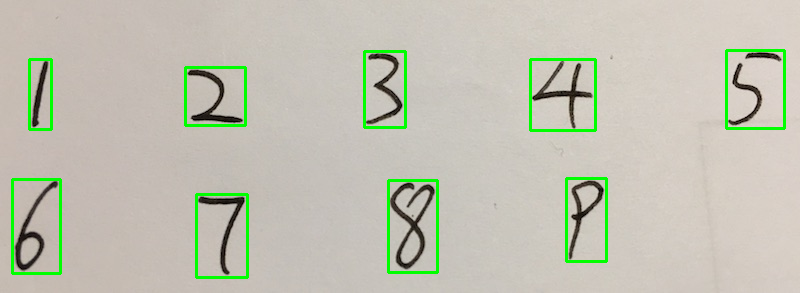 1 2 3 4 5
6 7 8 9